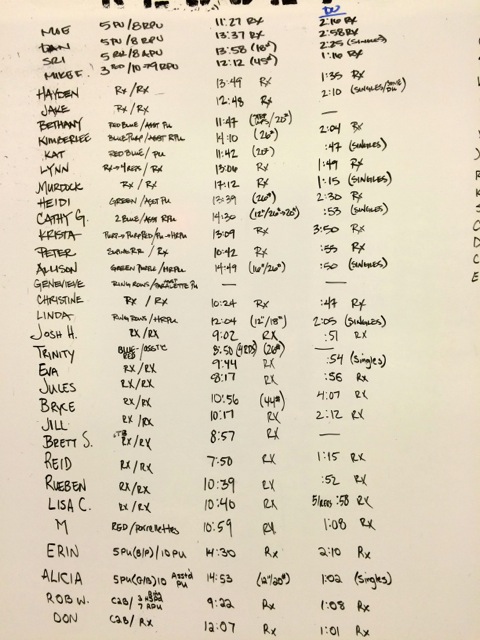 DU
MOE 5 PU/8 RPU 11:27 RX 2:16 RX
DAN 5 PU/8 RPU 13:37 RX 2:58 RX
SRI 13:58 (18") 2:25 (SINGLES)
MIKE F. 12:12 (45#) 1:16 RX
HAYDEN RX/RX 13:49 RX 1:35 RX
JAKE RX/RX 12:48 RX 2:10
BETHANY RED BLUE/ASST PU 11:47 —
KIMBERLEE BLUE PURP/ASST RPU 14:10 (26#) 2:04 RX
KAT RED BLUE/PU 11:42 (20#) :47 (SINGLES)
LYNN RX/RX 13:06 RX 1:49 RX
MURDOCK RX/RX 17:12 RX 1:15 (SINGLES)
HEIDI GREEN/ASST PU 13:39 (26#) 2:30 RX
CATHY G. 2 BLUE/ASST RPU 14:30 :53 (SINGLES)
KRISTA 13:09 RX 3:50 RX
PETER RX 10:42 RX :55 RX
ALLISON GREEN PURPLE/HRPU 14:49 (16"/26#) :50 (SINGLES)
GENEVIEVE RING ROWS/ PU — —
CHRISTINE RX/RX 10:24 RX :47 RX
LINDA RING ROWS/HRPU 12:04 (12"/18#) 2:05 (SINGLES)
JOSH H. RX/RX 9:02 RX :51 RX
TRINITY BLUE-RED/ASSTD 8:50 (4 RDS) (26#) —
EVA RX/RX 9:44 RX :54 (Singles)
JULES RX/RX 8:17 RX :56 RX
BRYCE RX/RX 10:56 (44#) 4:07 RX
JILL RX/RX 10:17 RX 2:12 RX
BRETT S. RX/RX 8:57 RX —
REID RX/RX 7:50 RX 1:15 RX
RUEBEN RX/RX 10:39 RX :52 RX
LISA C. RX/RX 10:40 RX :58 RX
M RED/ 10:59 RX 1:08 RX
ERIN 5 PU(B/P)/10 PU 14:30 RX 2:10 RX
ALICIA 5 PU(G/B) 10 Asst'd PU 14:53 (12"/20#) 1:02 (Singles)
ROB W. C2B/ 9:22 RX 1:08 RX
DON C2B/RX 12:07 RX 1:01 RX